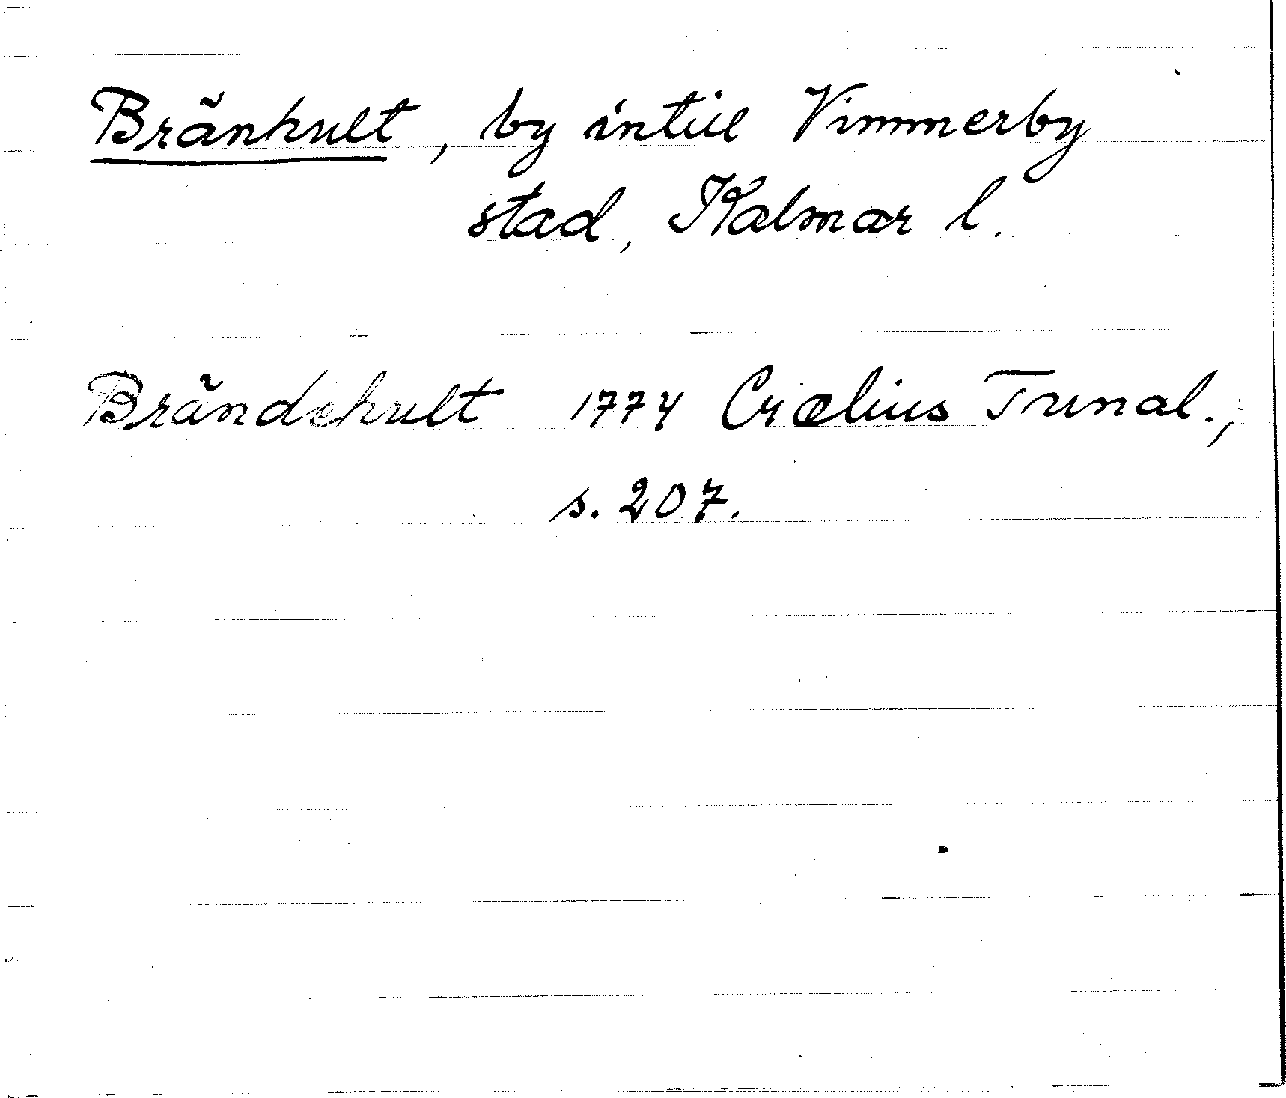 Bränkult, by intill Vimmerby
stad, Kalmar l.
Brändekult 1774 Crælius Tunal.,
s. 207.